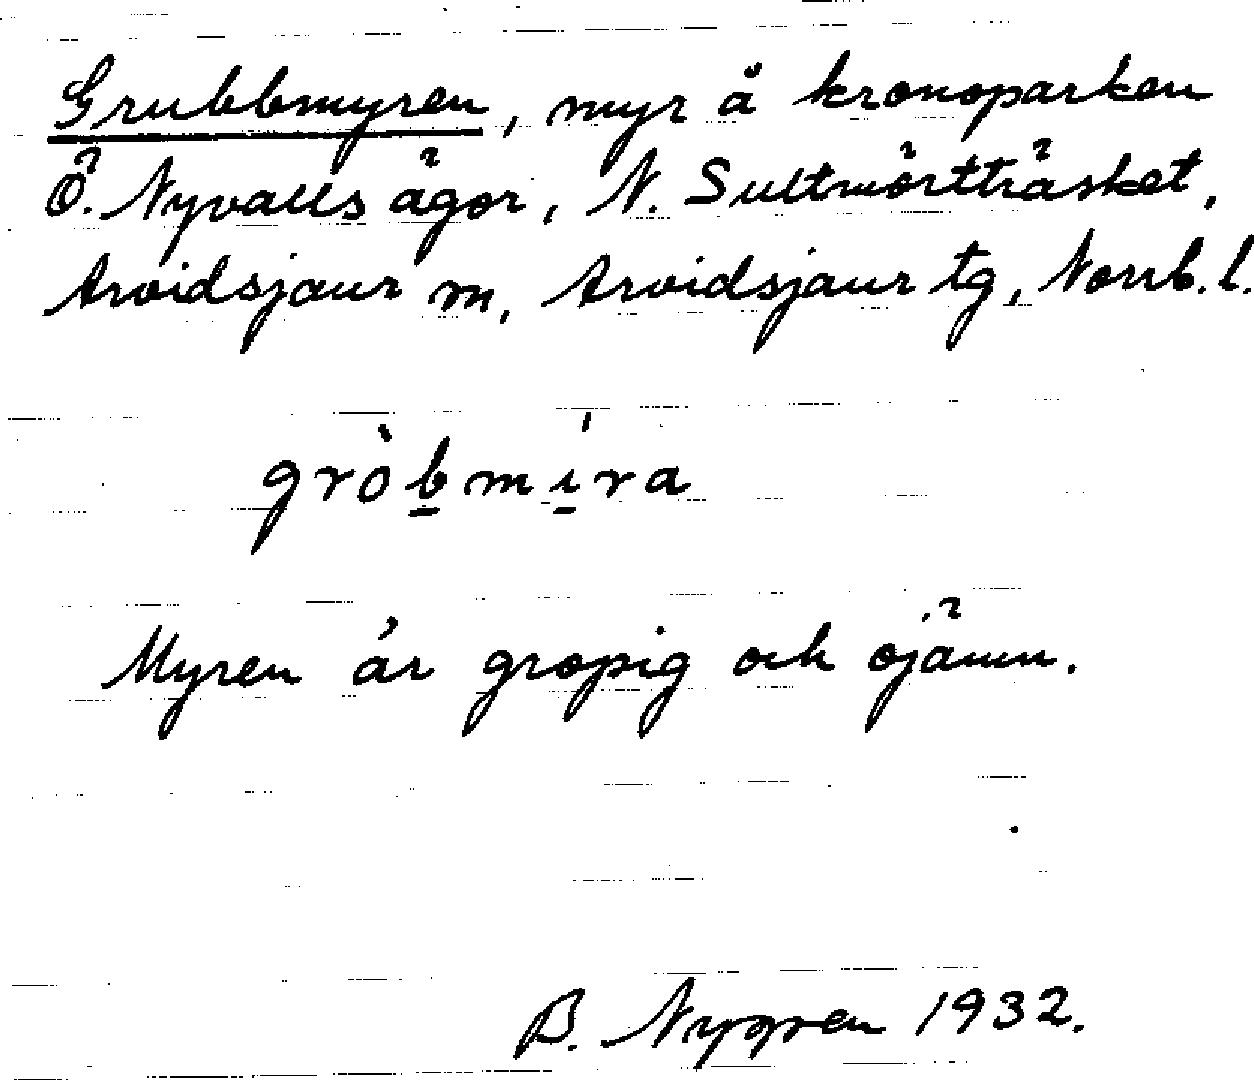 Grubbmyren, myr å kronoparken
Ö. Nyvalls ägor, N. Sultmörtträsket,
Arvidsjaur sn, Arvidsjaur tg, Norrb. l.
gròb̲mí̲ra
Myren är gropig och ojämn.
B. Nygren 1932.